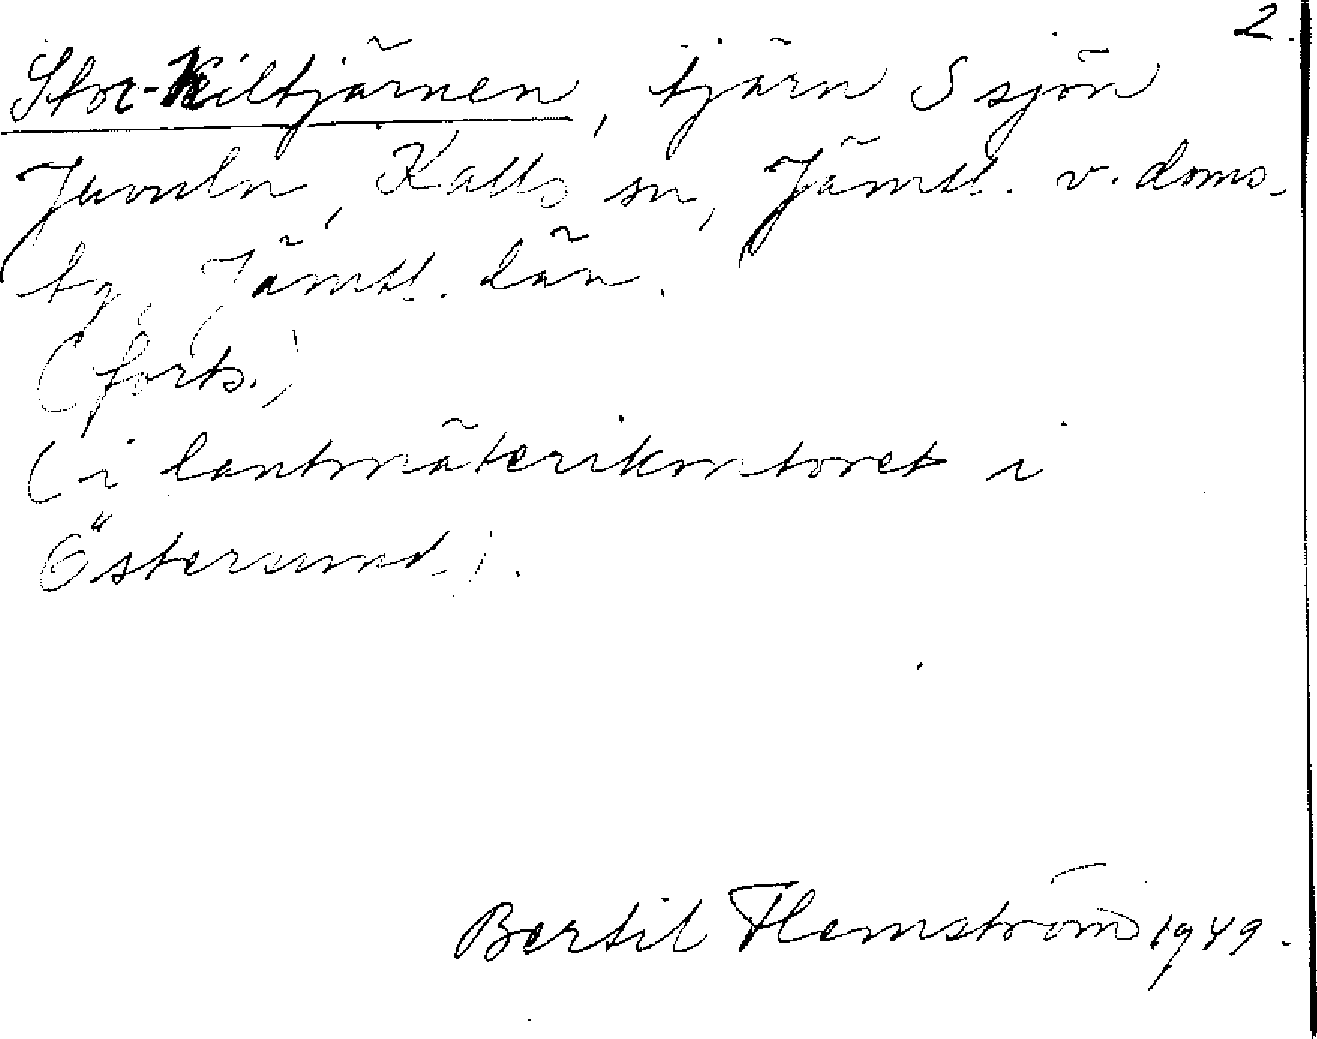 2.
Stor-Kiltjärnen, tjärn S sjön
Juvuln, Kalls sn, Jämtl. v. doms-
ag, Jämtl. län.
(forts.)
(i lantmäterikontoret i
Östersund.).
Bertil Flemström 1949.